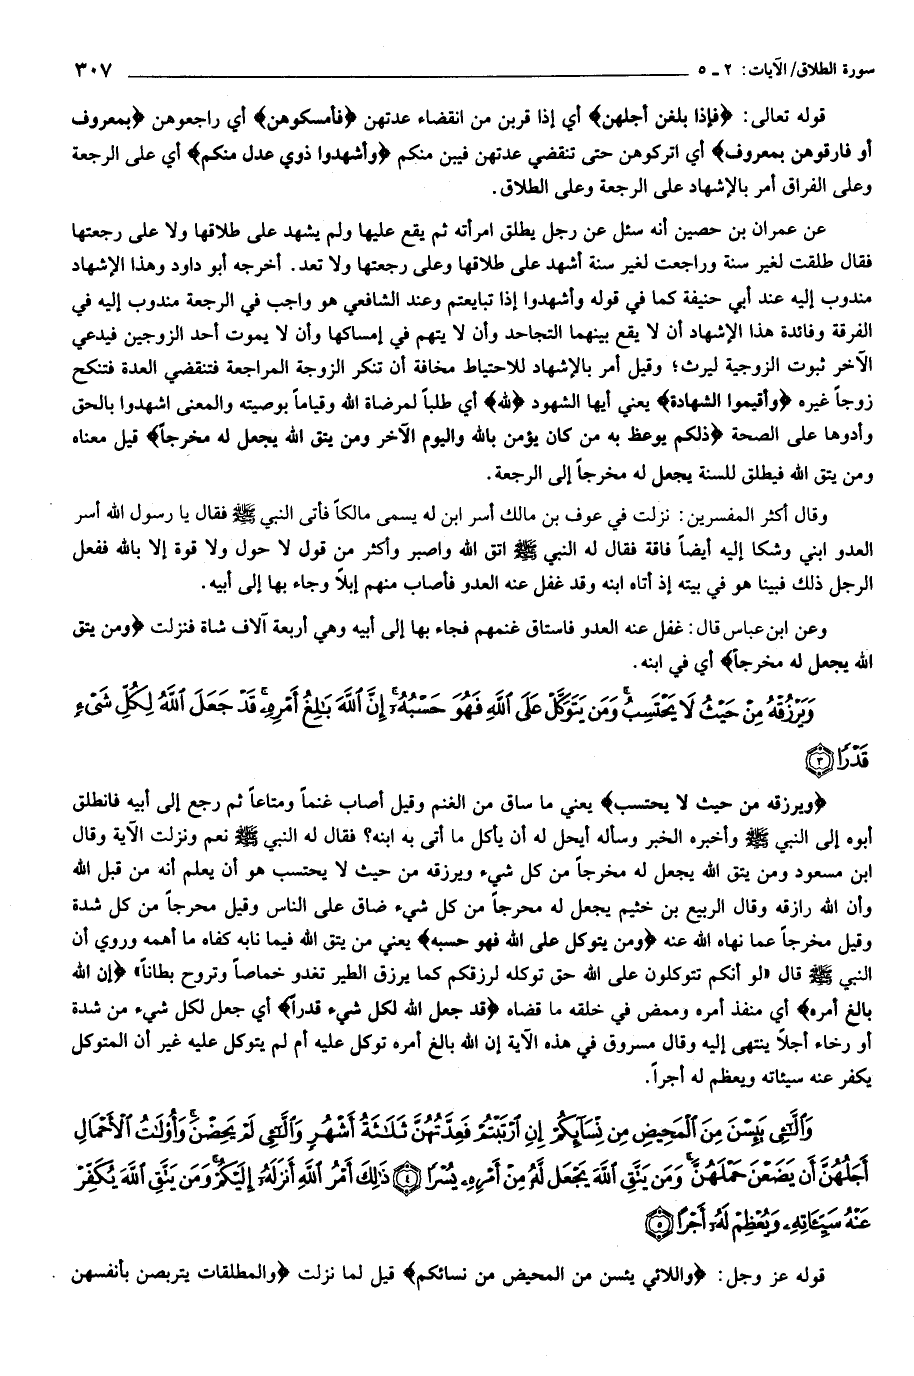 سورة الطلاق/ الآيات: ٢ ـ ٥ ٣٠٧
قوله تعالى: ﴿فإذا بلغن أجلهن﴾ أي إذا قربن من انقضاء عدتهن ﴿فأمسكوهن﴾ أي راجعوهن ﴿بمعروف
أو فارقوهن بمعروف﴾ أي اتركوهن حتى تنقضي عدتهن فيبن منكم ﴿وأشهدوا ذوي عدل منكم﴾ أي على الرجعة
وعلى الفراق أمر بالإشهاد على الرجعة وعلى الطلاق.
عن عمران بن حصين أنه سئل عن رجل يطلق امرأته ثم يقع عليها ولم يشهد على طلاقها ولا على رجعتها
فقال طلقت لغير سنة وراجعت لغير سنة أشهد على طلاقها وعلى رجعتها ولا تعد. أخرجه أبو داود وهذا الإشهاد
مندوب إليه عند أبي حنيفة كما في قوله وأشهدوا إذا تبايعتم وعند الشافعي هو واجب في الرجعة مندوب إليه في
الفرقة وفائدة هذا الإشهاد أن لا يقع بينهما التجاحد وأن لا يتهم في إمساكها وأن لا يموت أحد الزوجين فيدعي
الآخر ثبوت الزوجية ليرث؛ وقيل أمر بالإشهاد للاحتياط مخافة أن تنكر الزوجة المراجعة فتنقضي العدة فتنكح
زوجاً غيره ﴿وأقيموا الشهادة﴾ يعني أيها الشهود ﴿لله﴾ أي طلباً لمرضاة الله وقياماً بوصيته والمعنى اشهدوا بالحق
وأدوها على الصحة ﴿ذلكم يوعظ به من كان يؤمن بالله واليوم الآخر ومن يتق الله يجعل له مخرجاً﴾ قيل معناه
ومن يتق الله فيطلق للسنة يجعل له مخرجاً إلى الرجعة.
وقال أكثر المفسرين: نزلت في عوف بن مالك أسر ابن له يسمى مالكاً فأتى النبي ﷺ فقال يا رسول الله أسر
العدو ابني وشكا إليه أيضاً فاقة فقال له النبي ﷺ اتق الله واصبر وأكثر من قول لا حول ولا قوة إلا بالله ففعل
الرجل ذلك فبينا هو في بيته إذ أتاه ابنه وقد غفل عنه العدو فأصاب منهم إبلاً وجاء بها إلى أبيه.
وعن ابن عباس قال: غفل عنه العدو فاستاق غنمهم فجاء بها إلى أبيه وهي أربعة آلاف شاة فنزلت ﴿ومن يتق
الله يجعل له مخرجاً﴾ أي في ابنه.
وَيَرْزُقْهُ مِنْ حَيْثُ لَا يَحْتَسِبُ ۚ وَمَن يَتَوَكَّلْ عَلَى ٱللَّهِ فَهُوَ حَسْبُهُۥٓ ۚ إِنَّ ٱللَّهَ بَٰلِغُ أَمْرِهِۦ ۚ قَدْ جَعَلَ ٱللَّهُ لِكُلِّ شَىْءٍ
قَدْرًا ٣
﴿ويرزقه من حيث لا يحتسب﴾ يعني ما ساق من الغنم وقيل أصاب غنماً ومتاعاً ثم رجع إلى أبيه فانطلق
أبوه إلى النبي ﷺ وأخبره الخبر وسأله أيحل له أن يأكل ما أتى به ابنه؟ فقال له النبي ﷺ نعم ونزلت الآية وقال
ابن مسعود ومن يتق الله يجعل له مخرجاً من كل شيء ويرزقه من حيث لا يحتسب هو أن يعلم أنه من قبل الله
وأن الله رازقه وقال الربيع بن خثيم يجعل له محرجاً من كل شيء ضاق على الناس وقيل محرجاً من كل شدة
وقيل مخرجاً عما نهاه الله عنه ﴿ومن يتوكل على الله فهو حسبه﴾ يعني من يتق الله فيما نابه كفاه ما أهمه وروي أن
النبي ﷺ قال «لو أنكم تتوكلون على الله حق توكله لرزقكم كما يرزق الطير تغدو خماصاً وتروح بطاناً» ﴿إن الله
بالغ أمره﴾ أي منفذ أمره وممض في خلقه ما قضاه ﴿قد جعل الله لكل شيء قدراً﴾ أي جعل لكل شيء من شدة
أو رخاء أجلاً ينتهى إليه وقال مسروق في هذه الآية إن الله بالغ أمره توكل عليه أم لم يتوكل عليه غير أن المتوكل
يكفر عنه سيئاته ويعظم له أجراً.
وَٱلَّٰٓـِٔى يَئِسْنَ مِنَ ٱلْمَحِيضِ مِن نِّسَآئِكُمْ إِنِ ٱرْتَبْتُمْ فَعِدَّتُهُنَّ ثَلَٰثَةُ أَشْهُرٍ وَٱلَّٰٓـِٔى لَمْ يَحِضْنَ ۚ وَأُو۟لَٰتُ ٱلْأَحْمَالِ
أَجَلُهُنَّ أَن يَضَعْنَ حَمْلَهُنَّ ۚ وَمَن يَتَّقِ ٱللَّهَ يَجْعَل لَّهُۥ مِنْ أَمْرِهِۦ يُسْرًا ٤ ذَٰلِكَ أَمْرُ ٱللَّهِ أَنزَلَهُۥٓ إِلَيْكُمْ ۚ وَمَن يَتَّقِ ٱللَّهَ يُكَفِّرْ
عَنْهُ سَيِّـَٔاتِهِۦ وَيُعْظِمْ لَهُۥٓ أَجْرًا ٥
قوله عز وجل: ﴿واللائي يئسن من المحيض من نسائكم﴾ قيل لما نزلت ﴿والمطلقات يتربصن بأنفسهن